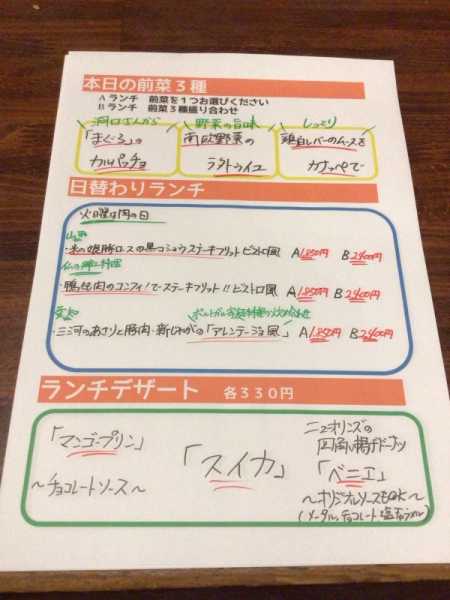 本日の前菜3種
Aランチ 前菜を1つお選びください
Bランチ 前菜3種盛り合わせ
洞口さんから 野菜の旨味 しっとり
「まぐろ」の 南欧野菜の 鶏白レバーのムースを
カルパッチョ ラタトゥイユ カナッペで
日替わりランチ
火曜日は肉の日
山形
・米の娘豚ロースの黒コショウステーキフリット ビストロ風 A1,850円 B2,400円
仏の郷土料理
・鴨もも肉のコンフィ!でステーキフリット!!ビストロ風 A1,850円 B2,400円
愛知 ポルトガル家庭料理の炒め合わせ
・三河のあさりと豚肉・新じゃがの「アレンテージョ風」 A1,850円 B2,400円
ランチデザート 各330円
「マンゴープリン」
〜チョコレートソース〜
「スイカ」
ニューオリンズの
四角い揚げドーナツ
「ベニエ」
〜オリジナルソースもOK〜
(メープル、チョコレート、塩キャラメル)